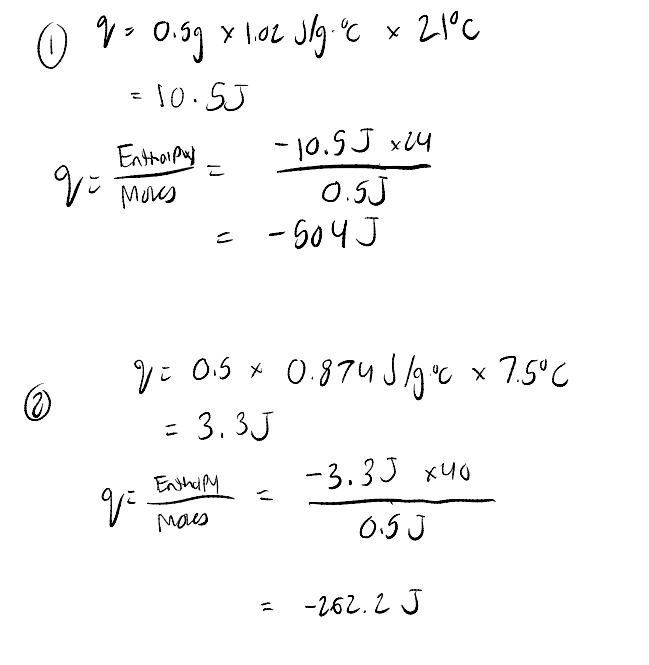 ① q = 0.5g × 1.02 J/g·°C × 21°C
= 10.5J
q = Enthalpy / Moles = -10.5 J ×24 / 0.5J
= -504 J
② q = 0.5 × 0.874 J/g·°C × 7.5°C
= 3.3J
q = Enthalpy / Moles = -3.3J ×40 / 0.5 J
= -262.2 J